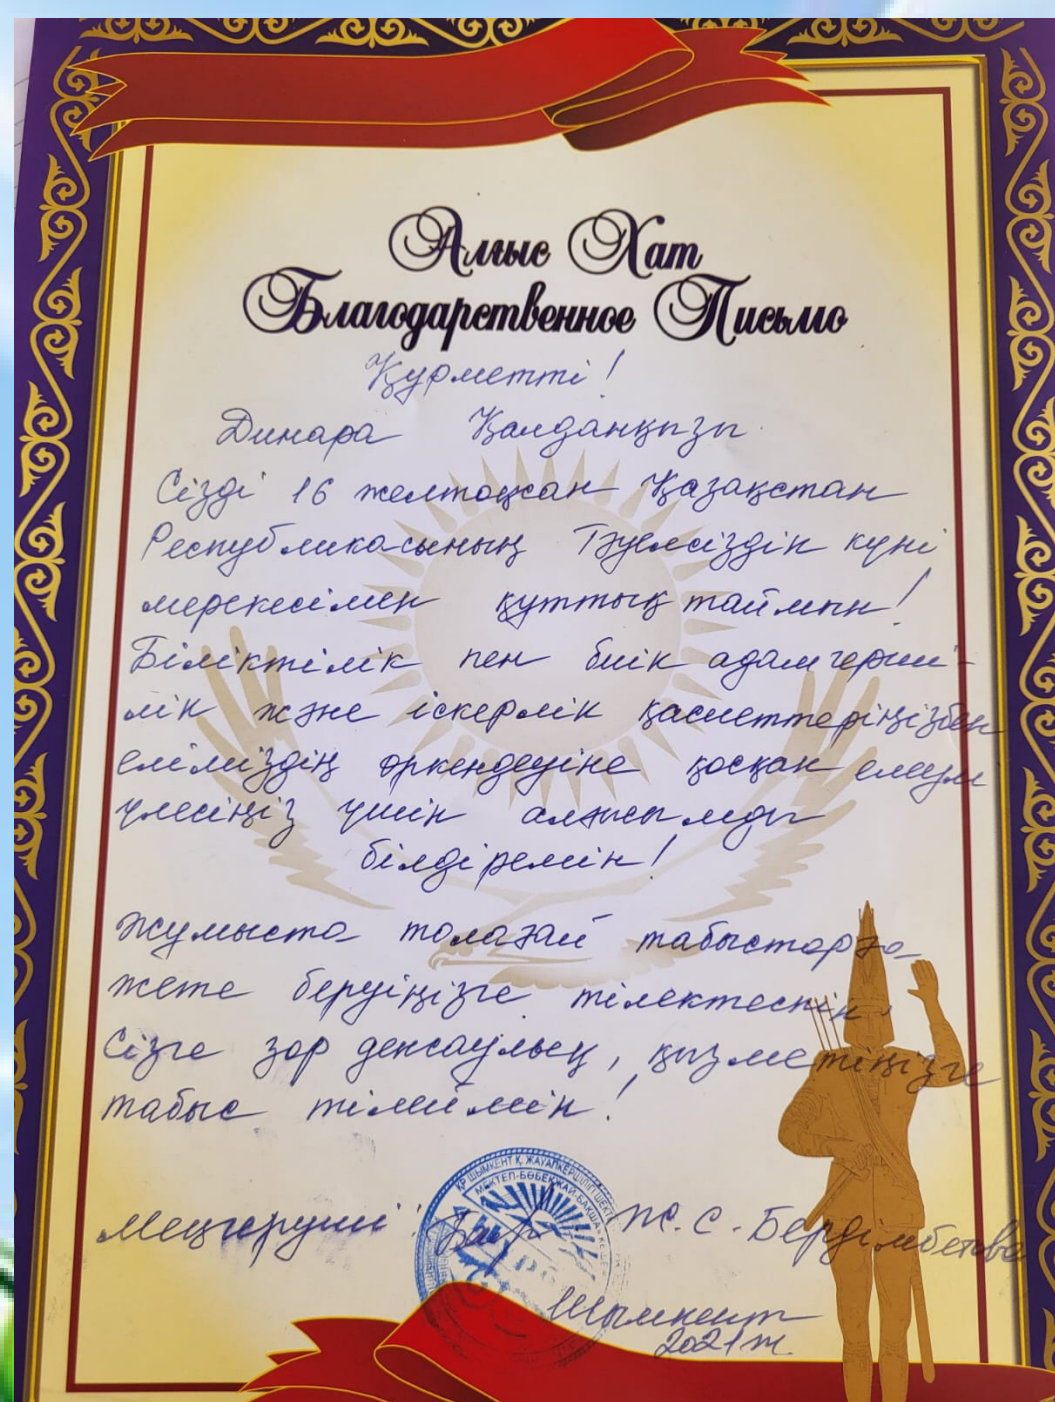 Алғыс Хат
Благодарственное Письмо
Құрметті!
Динара Қалданқызы
Сізді 16 желтоқсан Қазақстан
Республикасының Тәуелсіздік күні
мерекесімен құттықтаймын!
Біліктілік пен биік адамгерші-
лік және іскерлік қасиеттеріңізбен
еліміздің өркендеуіне қосқан елеулі
үлесіңіз үшін алғысымды
білдіремін!
Жұмыста толағай табыстарға
жете беруіңізге тілектеспін.
Сізге зор денсаулық, қызметіңізге
табыс тілеймін!
ҚР ШЫМКЕНТ Қ. ЖАУАПКЕРШІЛІГІ ШЕКТ
МЕКТЕП-БӨБЕКЖАЙ-БАҚША
Меңгеруші: Ж. С. Бердімбетова
Шымкент
2021 ж.